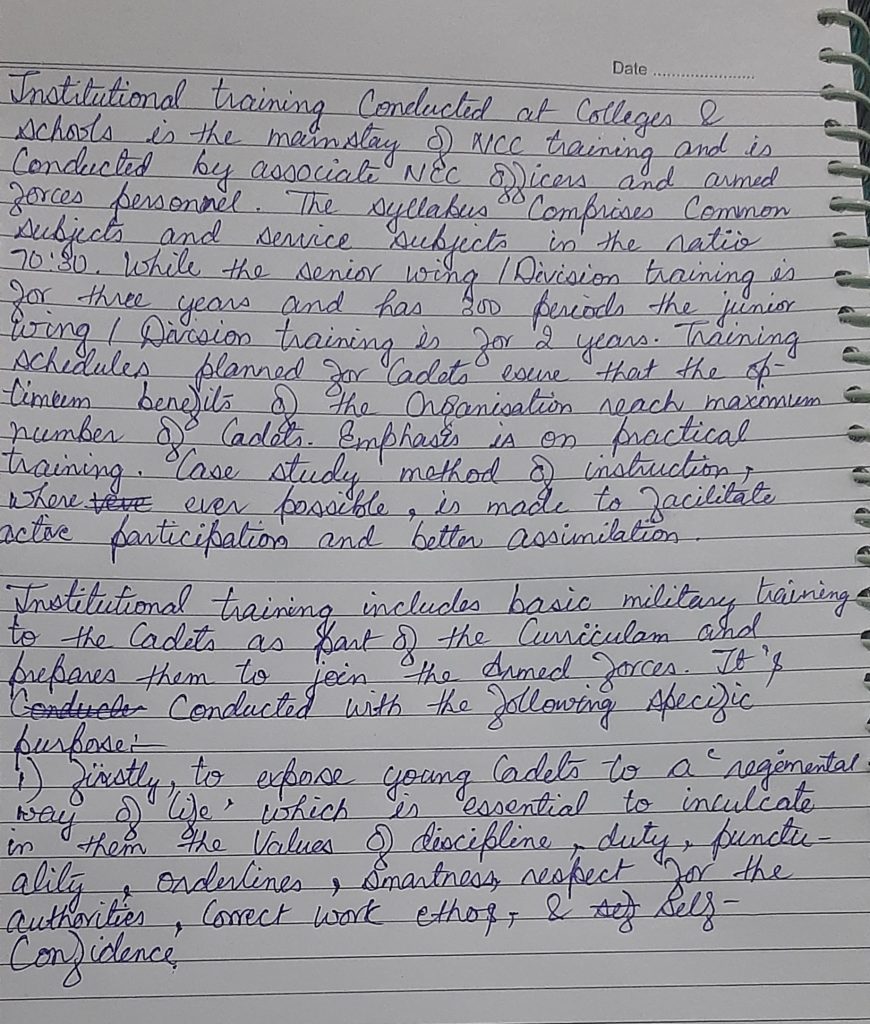 Date ........................
Institutional training Conducted at Colleges &
schools is the mainstay of NCC training and is
Conducted by associate NCC officers and armed
forces personnel. The syllabus Comprises Common
subjects and service subjects in the ratio
70:30. While the senior wing / Division training is
for three years and has 300 periods the junior
wing / Division training is for 2 years. Training
schedules planned for Cadets esure that the op-
timum benefits of the Organisation reach maximum
number of Cadets. Emphasis is on practical
training. Case study method of instruction,
where ever possible, is made to facilitate
active participation and better assimilation.
Institutional training includes basic military training
to the Cadets as part of the Curriculam and
prepares them to join the Armed forces. It's
Conducted with the following specific
purpose:-
1) firstly, to expose young Cadets to a 'regemental
way of life' which is essential to inculcate
in them the Values of discipline, duty, punctu-
ality, orderlines, smartness, respect for the
authorities, Correct work ethos, & Self-
Confidence.